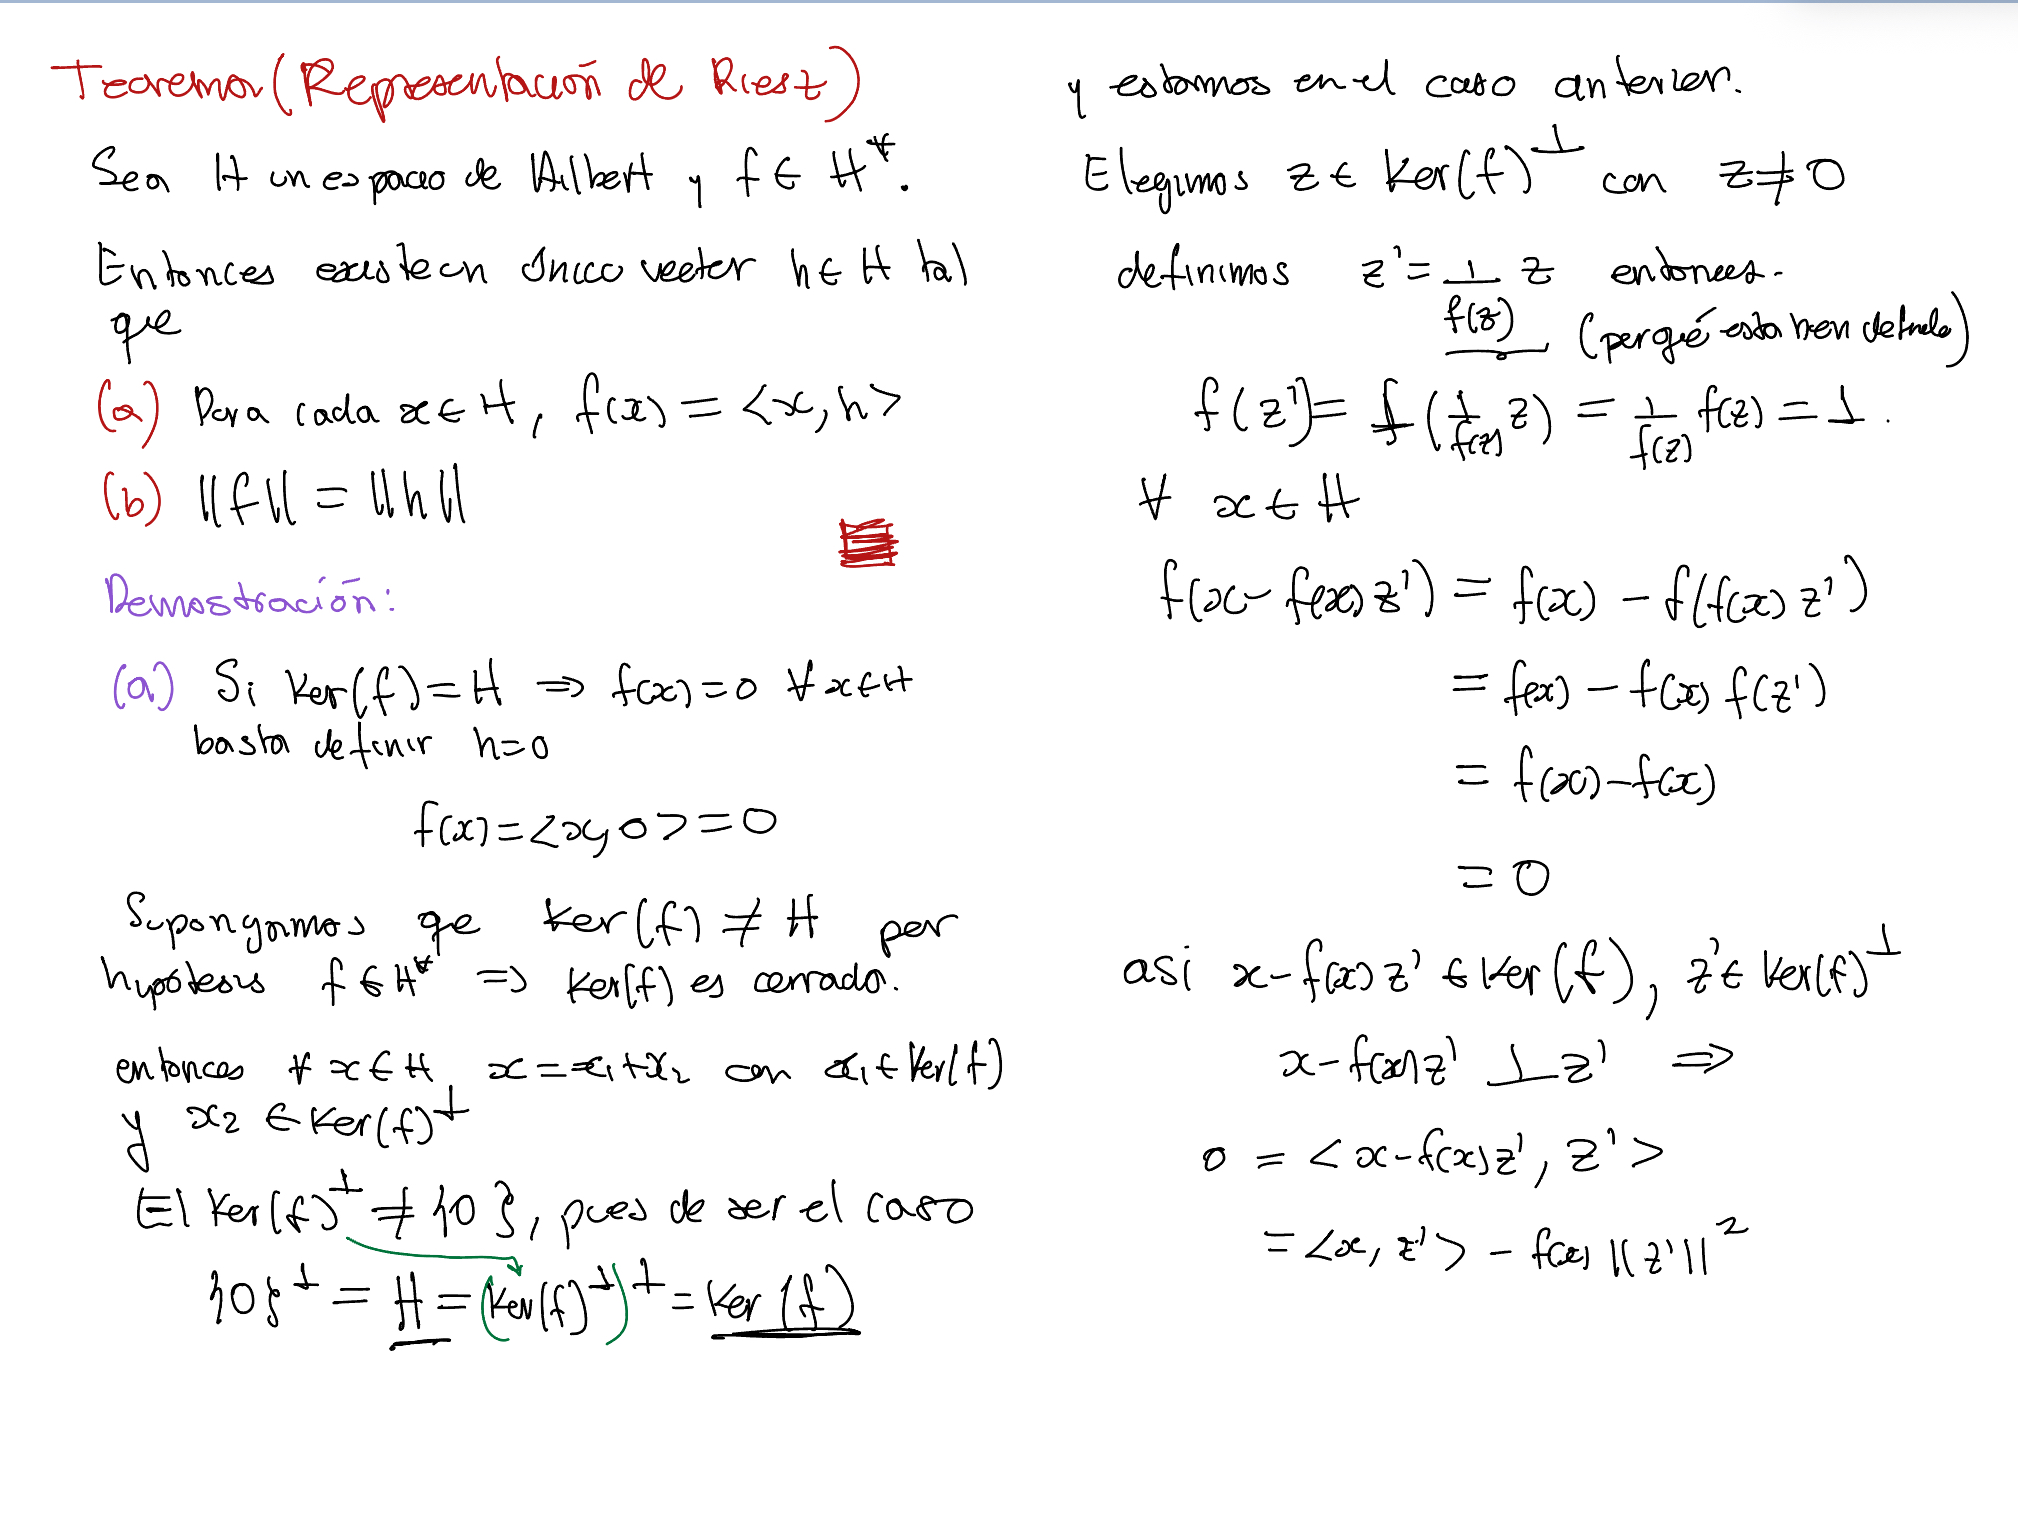 Teorema (Representación de Riesz)
Sea H un espacio de Hilbert y f ∈ H*.
Entonces existe un único vector h ∈ H tal
que
(a) Para cada x ∈ H, f(x) = <x, h>
(b) ||f|| = ||h||
Demostración:
(a) Si Ker(f) = H ⇒ f(x) = 0 ∀ x ∈ H
basta definir h=0
f(x) = <x, 0> = 0
Supongamos que Ker(f) ≠ H por
hypótesis f ∈ H* ⇒ Ker(f) es cerrado.
entonces ∀ x ∈ H x = x₁+x₂ con x₁ ∈ Ker(f)
y x₂ ∈ Ker(f)^⊥
El Ker(f)^⊥ ≠ {0}, pues de ser el caso
{0}^⊥ = H = (Ker(f)^⊥)^⊥ = Ker(f)
y estamos en el caso anterior.
Elegimos z ∈ Ker(f)^⊥ con z ≠ 0
definimos z' = 1/f(z) z entonces.
(porqué esta bien definido)
f(z') = f(1/f(z) z) = 1/f(z) f(z) = 1.
∀ x ∈ H
f(x - f(x) z') = f(x) - f(f(x) z')
= f(x) - f(x) f(z')
= f(x) - f(x)
= 0
asi x - f(x) z' ∈ Ker(f), z' ∈ Ker(f)^⊥
x - f(x) z' ⊥ z' ⇒
0 = <x - f(x) z', z'>
= <x, z'> - f(x) ||z'||²